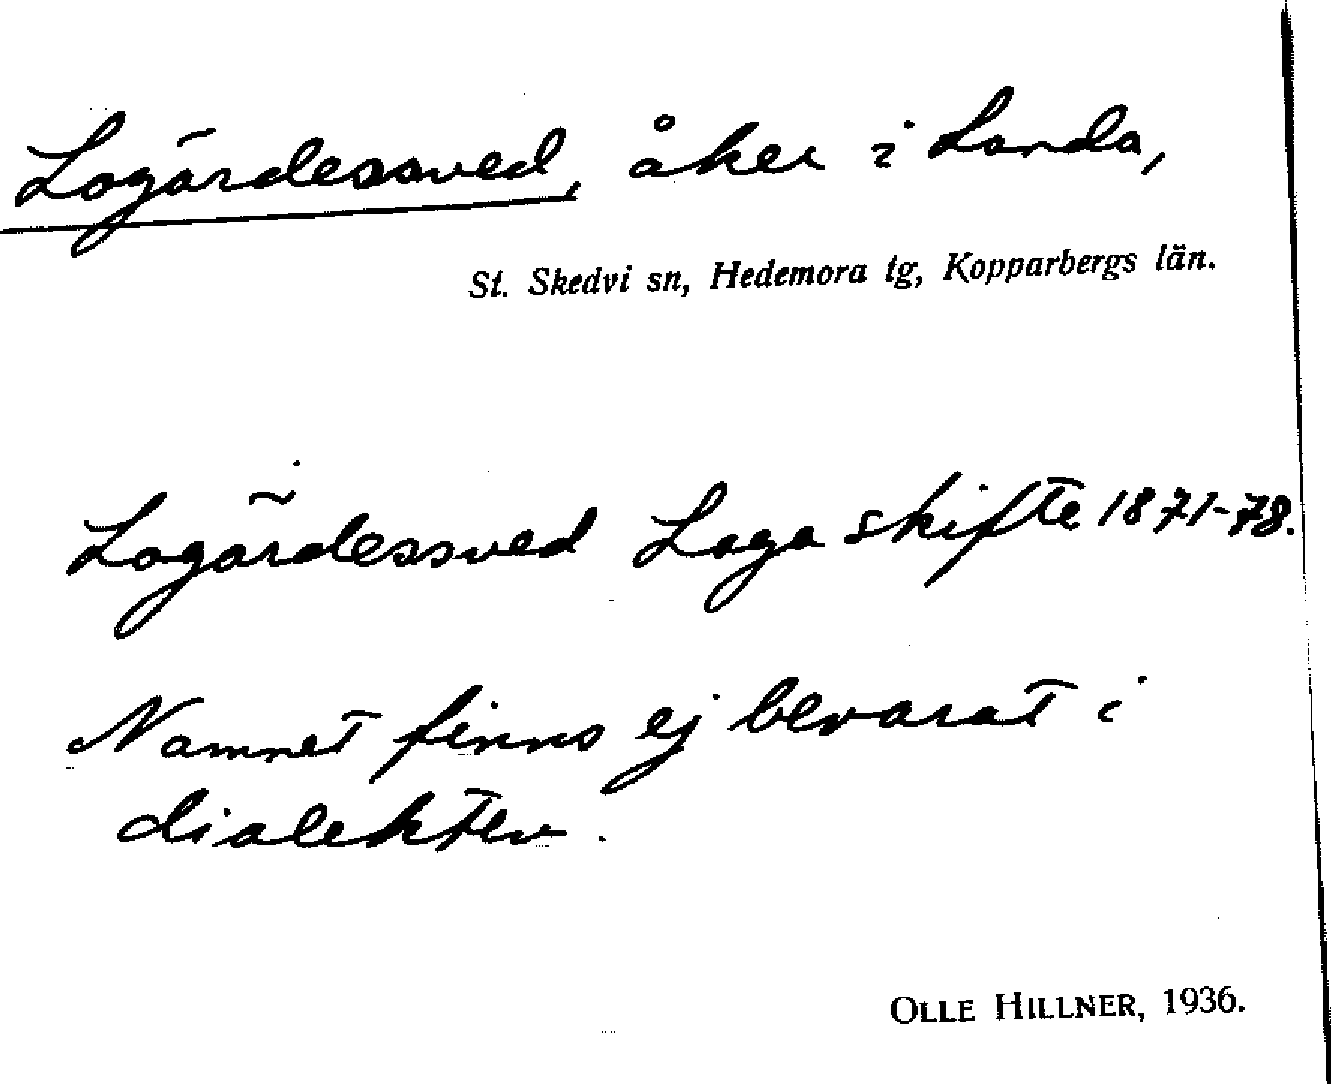 Logärdessved, åker i Landa,
St. Skedvi sn, Hedemora tg, Kopparbergs län.
Logärdessved Laga skifte 1871-78.
Namnet finns ej bevarat i
dialekten.
OLLE HILLNER, 1936.